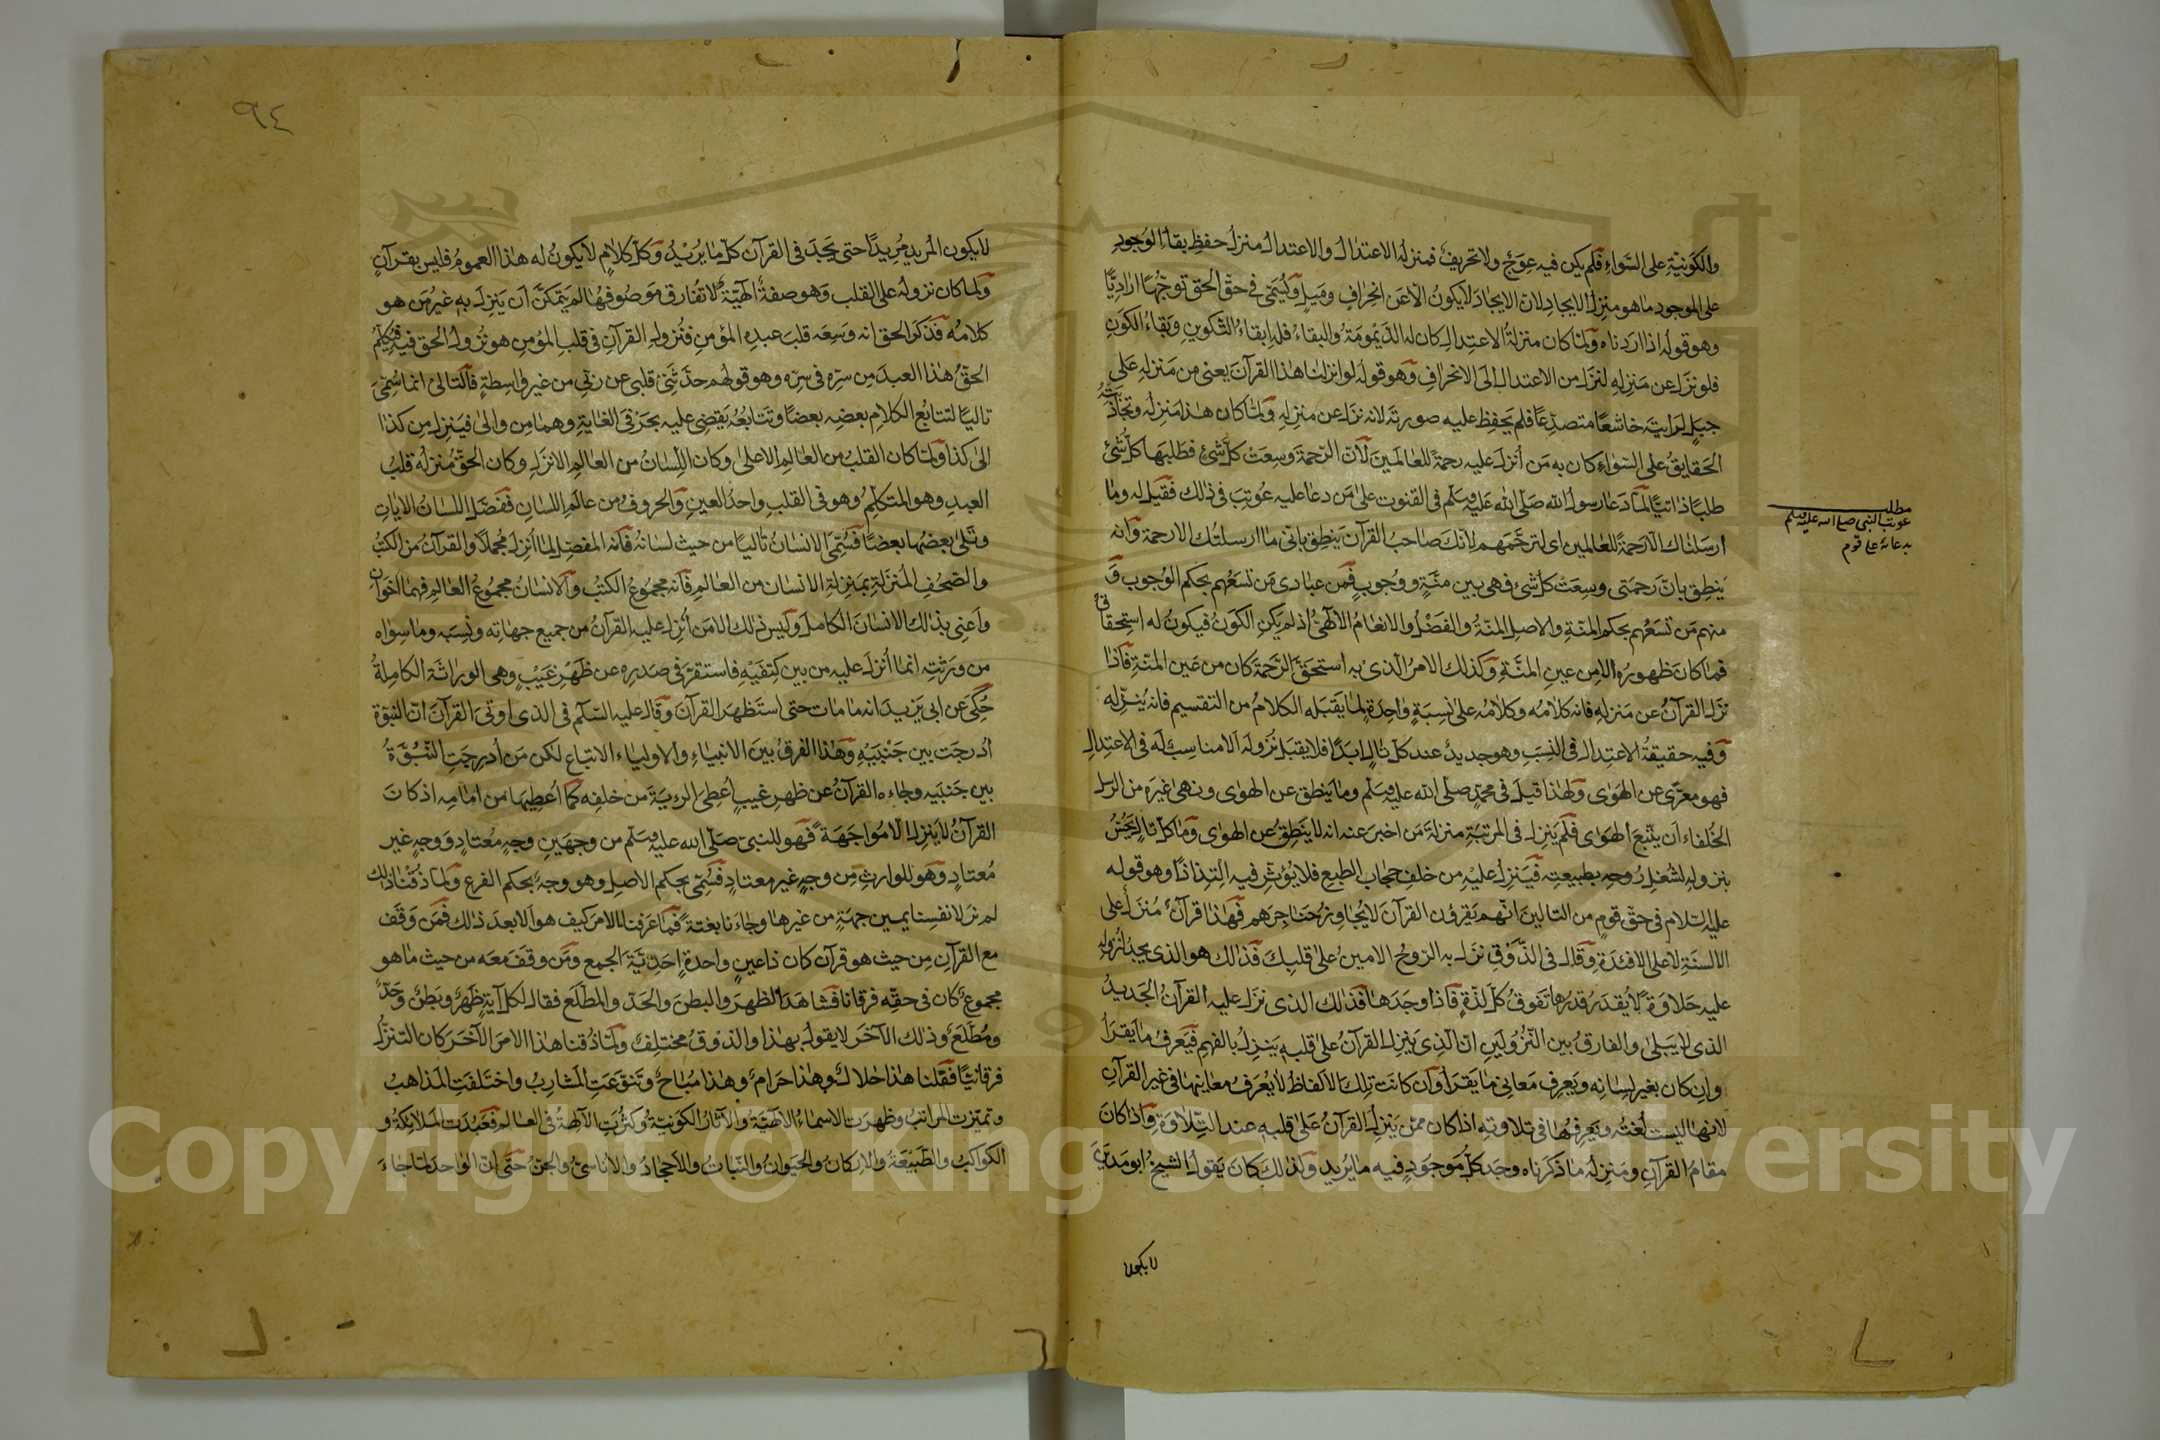 والكونية على السواء فلم يكن فيه عوج ولا تحريف فمنزله الاعتدال والاعتدال منزل حفظ بقاء الوجود
على الموجود ما هو منزل الايجاد لان الايجاد لا يكون الا عن انحراف وميل ويسمى في حق الحق توجها اراديا
وهو قوله اذا اردناه ولما كان منزلة الاعتدال كان له الديمومة والبقاء فله ابقاء التكوين وبقاء الكون
فلو نزل عن منزله لنزل من الاعتدال الى الانحراف وهو قوله لو انزلنا هذا القرآن يعني من منزله على
جبل لرايته خاشعا متصدعا فلم يحفظ عليه صورته لانه نزل عن منزله ولما كان هذا منزله وتجاذبته
الحقايق على السواء كان به من أنزل عليه رحمة للعالمين لان الرحمة وسعت كل شئ فطلبها كل شئ
طلبا ذاتيا لما دعا رسول الله صلى الله عليه وسلم في القنوت على من دعا عليه عوتب في ذلك فقيل له وما
ارسلناك الا رحمة للعالمين اي لترحمهم لانك صاحب القرآن ينطق باني ما ارسلتك الا رحمة وانه
ينطق بان رحمتي وسعت كل شئ فهي بين منة ووجوب فمن عبادي من تسعهم بحكم الوجوب و
منهم من تسعهم بحكم المنة والاصل المنة والفضل والانعام الالهي اذ لم يكن الكون فيكون له استحقاق
فما كان ظهوره الا من عين المنة وكذلك الامر الذي به استحق الرحمة كان من عين المنة فاذا
نزل القرآن عن منزله فانه كلامه وكلامه على نسبة واحدة لما يقبله الكلام من التقسيم فانه ينزله
وفيه حقيقة الاعتدال في النسب وهو جديد عند كل تال ابدا فلا يقبل نزوله الا مناسب له في الاعتدال
فهو معرى عن الهوى ولهذا قيل في محمد صلى الله عليه وسلم وما ينطق عن الهوى ونهى غيره من الرسل
الخلفاء ان يتبع الهوى فلم ينزل في المرتبة منزلة من اخبر عنه انه لا ينطق عن الهوى وما كل تال يحس
بنزوله لشغل روحه بطبيعته فينزل عليه من خلف حجاب الطبع فلا يؤثر فيه التذاذا وهو قوله
عليه السلام في حق قوم من التالين انهم يقرؤن القرآن لا يجاوز حناجرهم فهذا قرآن منزل على
الالسنة لا على الافئدة وقال في الذوق نزل به الروح الامين على قلبك فذلك هو الذي يجد لنزوله
عليه حلاوة لا يقدر قدرها تفوق كل لذة فاذا وجدها فذلك الذي نزل عليه القرآن الجديد
الذي لا يبلى والفارق بين النزولين ان الذي ينزل القرآن على قلبه ينزل بالفهم فيعرف ما يقرأ
وان كان بغير لسانه ويعرف معاني ما يقرأ وان كانت تلك الالفاظ لا يعرف معانيها في غير القرآن
لانها ليست لغته ويعرفها في تلاوته اذا كان ممن ينزل القرآن على قلبه عند التلاوة واذا كان
مقام القرآن ومنزله ما ذكرناه وجد كل موجود فيه ما يريد ولذلك كان يقول الشيخ ابو مدين
لا يكون
مطلب
عوتب النبي صلى الله عليه وسلم
بدعائه على قوم
٩٤
لا يكون المريد مريدا حتى يجد في القرآن كل ما يريد وكل كلام لا يكون له هذا العموم فليس بقرآن
ولما كان نزوله على القلب وهو صفة الهية لا تفارق موصوفها لم يتمكن ان ينزل به غير من هو
كلامه فذكر الحق انه وسعه قلب عبده المؤمن فنزول القرآن في قلب المؤمن هو نزول الحق فيه فيكلم
الحق هذا العبد من سره في سره وهو قولهم حدثني قلبي عن ربي من غير واسطة فالتالي انما سمي
تاليا لتتابع الكلام بعضه بعضا وتتابعه يقضي عليه بحرفي الغاية وهما من والى فينزل من كذا
الى كذا ولما كان القلب من العالم الاعلى وكان اللسان من العالم الانزل وكان الحق منزله قلب
العبد وهو المتكلم وهو في القلب واحد العين والحروف من عالم اللسان ففصل اللسان الايات
وتلى بعضها بعضا فسمي الانسان تاليا من حيث لسانه فانه المفصل لما أنزل مجملا والقرآن من الكتب
والصحف المنزلة بمنزلة الانسان من العالم فانه مجموع الكتب والانسان مجموع العالم فهما اخوان
واعني بذلك الانسان الكامل وليس ذلك الا من أنزل عليه القرآن من جميع جهاته ونسبه وما سواه
من ورثته انما انزل عليه من بين كتفيه فاستقر في صدره عن ظهر غيب وهي الوراثة الكاملة
حكي عن ابي يزيد انه ما مات حتى استظهر القرآن وقال عليه السلام في الذي اوتي القرآن ان النبوة
ادرجت بين جنبيه وهذا الفرق بين الانبياء والاولياء الاتباع لكن من أدرجت النبوة
بين جنبيه وجاءه القرآن عن ظهر غيب أعطي الرؤية من خلفه كما أعطيها من امامه اذ كان
القرآن لا ينزل الا مواجهة فهو للنبي صلى الله عليه وسلم من وجهين وجه معتاد ووجه غير
معتاد وهو للوارث من وجه غير معتاد فسمي بحكم الاصل وهو وجه بحكم الفرع ولما ذقنا ذلك
لم نر لانفسنا تمييز جهة من غيرها وجاءنا بغتة فما عرفنا الامر كيف هو الا بعد ذلك فمن وقف
مع القرآن من حيث هو قرآن كان ذا عين واحدة احدية الجمع ومن وقف معه من حيث ما هو
مجموع كان في حقه فرقانا فشاهد الظهر والبطن والحد والمطلع فقال لكل آية ظهر وبطن وحد
ومطلع وذلك الآخر لا يقول بهذا والذوق مختلف ولما ذقنا هذا الامر الآخر كان التنزل
فرقانيا فقلنا هذا حلال وهذا حرام وهذا مباح وتنوعت المشارب واختلفت المذاهب
وتميزت المراتب وظهرت الاسماء الالهية والآثار الكونية وكثرت الآلهة في العالم فعبدت الملائكة و
الكواكب والطبيعة والاركان والحيوان والنبات والاحجار والاناسي والجن حتى ان الواحد لما جاء
Copyright © King Saud University